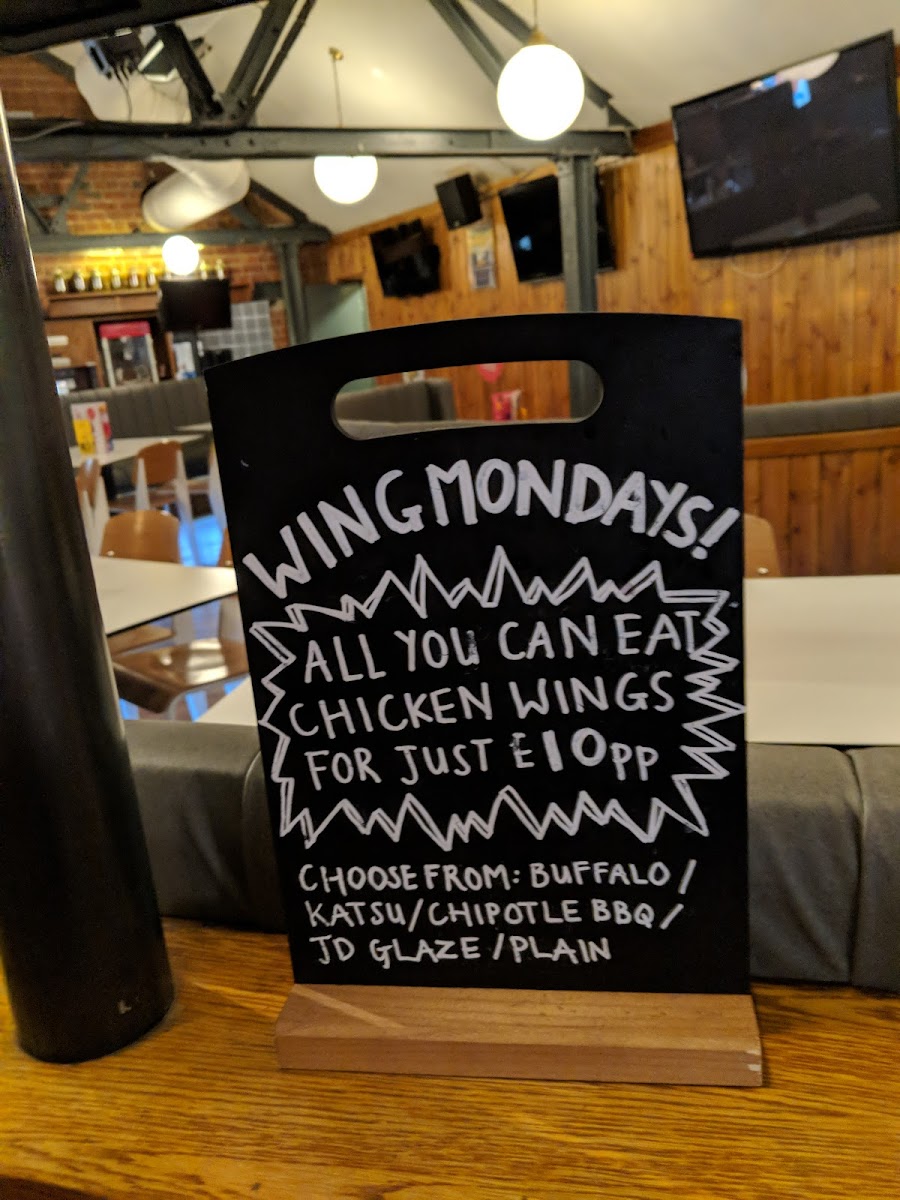 WING MONDAYS!
ALL YOU CAN EAT
CHICKEN WINGS
FOR JUST £10PP
CHOOSE FROM: BUFFALO /
KATSU/CHIPOTLE BBQ /
JD GLAZE /PLAIN